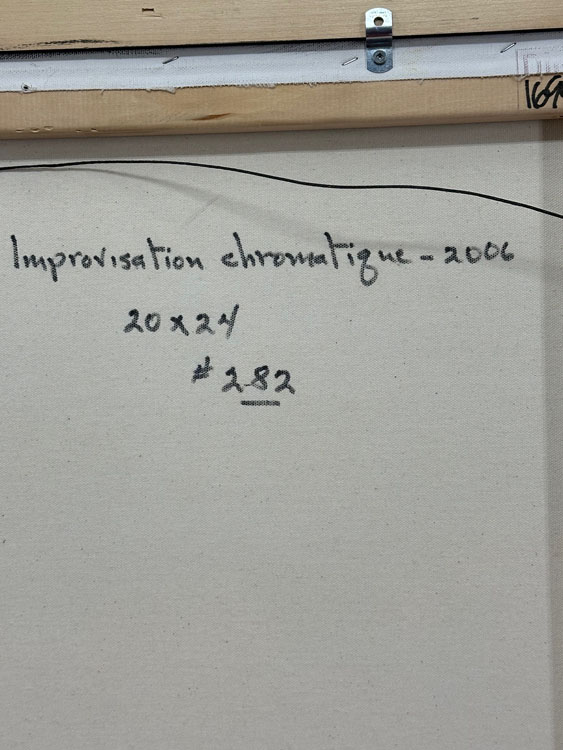 Improvisation chromatique - 2006
20 x 24
# 282